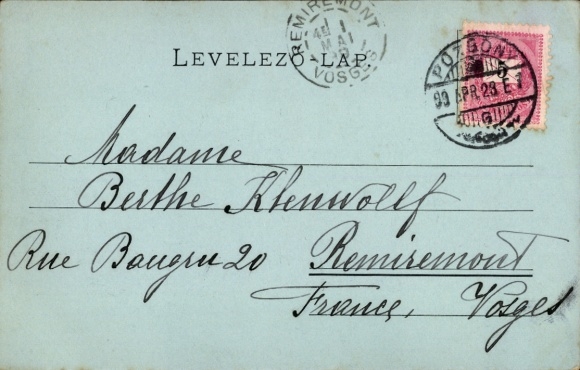 LEVELEZŐ LAP.
REMIREMONT
1
MAI
VOSGES
POZSONY
99 APR. 23 E
5
Madame
Berthe Klenwolff
Rue Baugru 20 Remiremont
France, Vosges